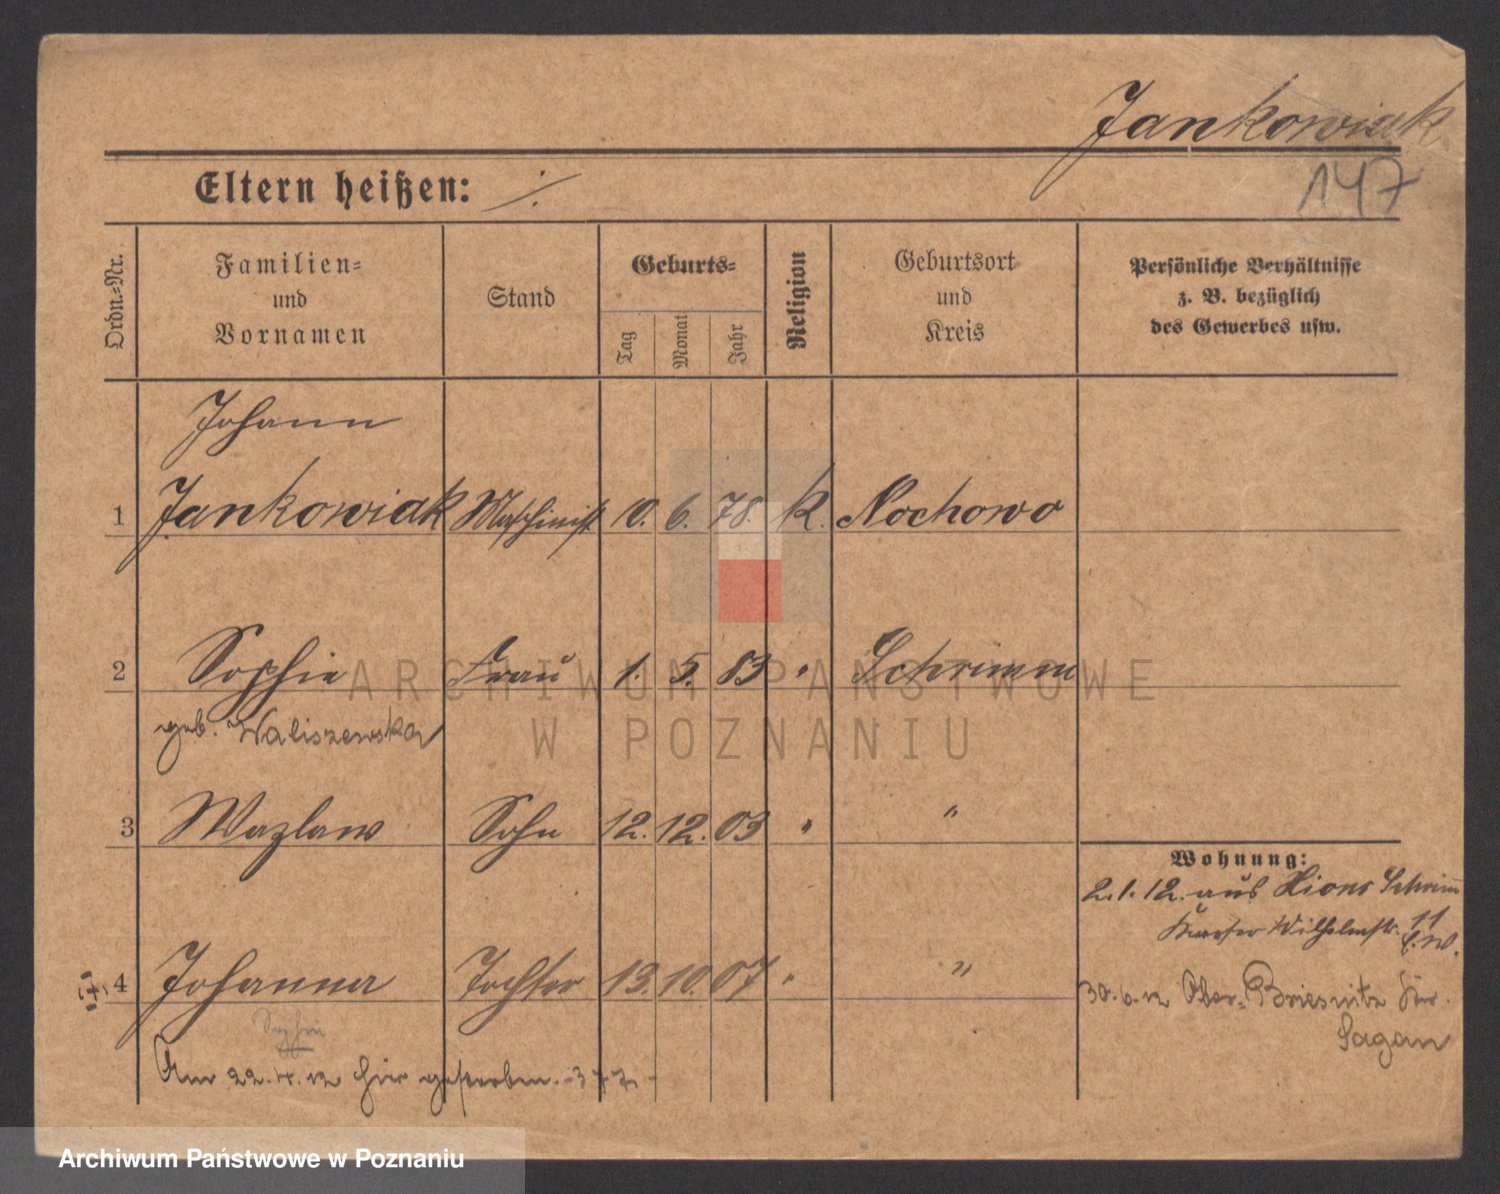 Jankowiak
147
Eltern heißen: ./.
Ordn.=Nr.
Familien=
und
Vornamen
Stand
Geburts=
Tag
Monat
Jahr
Religion
Geburtsort
und
Kreis
Persönliche Verhältnisse
z. B. bezüglich
des Gewerbes usw.
Johann
1 Jankowiak Maschinist 10. 6. 78. K. Nochowo
2 Sophie Frau 1. 5. 83 " Schrimm
geb. Waliszewska
3 Wazlaw Sohn 12. 12. 03 " "
Wohnung:
2.1.12. aus Xions Schrimm
Kaiser Wilhelmstr. 11
b. W.
4 Johanna Tochter 13. 10. 07 " "
30.6.12 Ober-Briesnitz Kr.
Sagan
Sophie
Am 22.4.12 hier gestorben.
ARCHIWUM PAŃSTWOWE
W POZNANIU
Archiwum Państwowe w Poznaniu